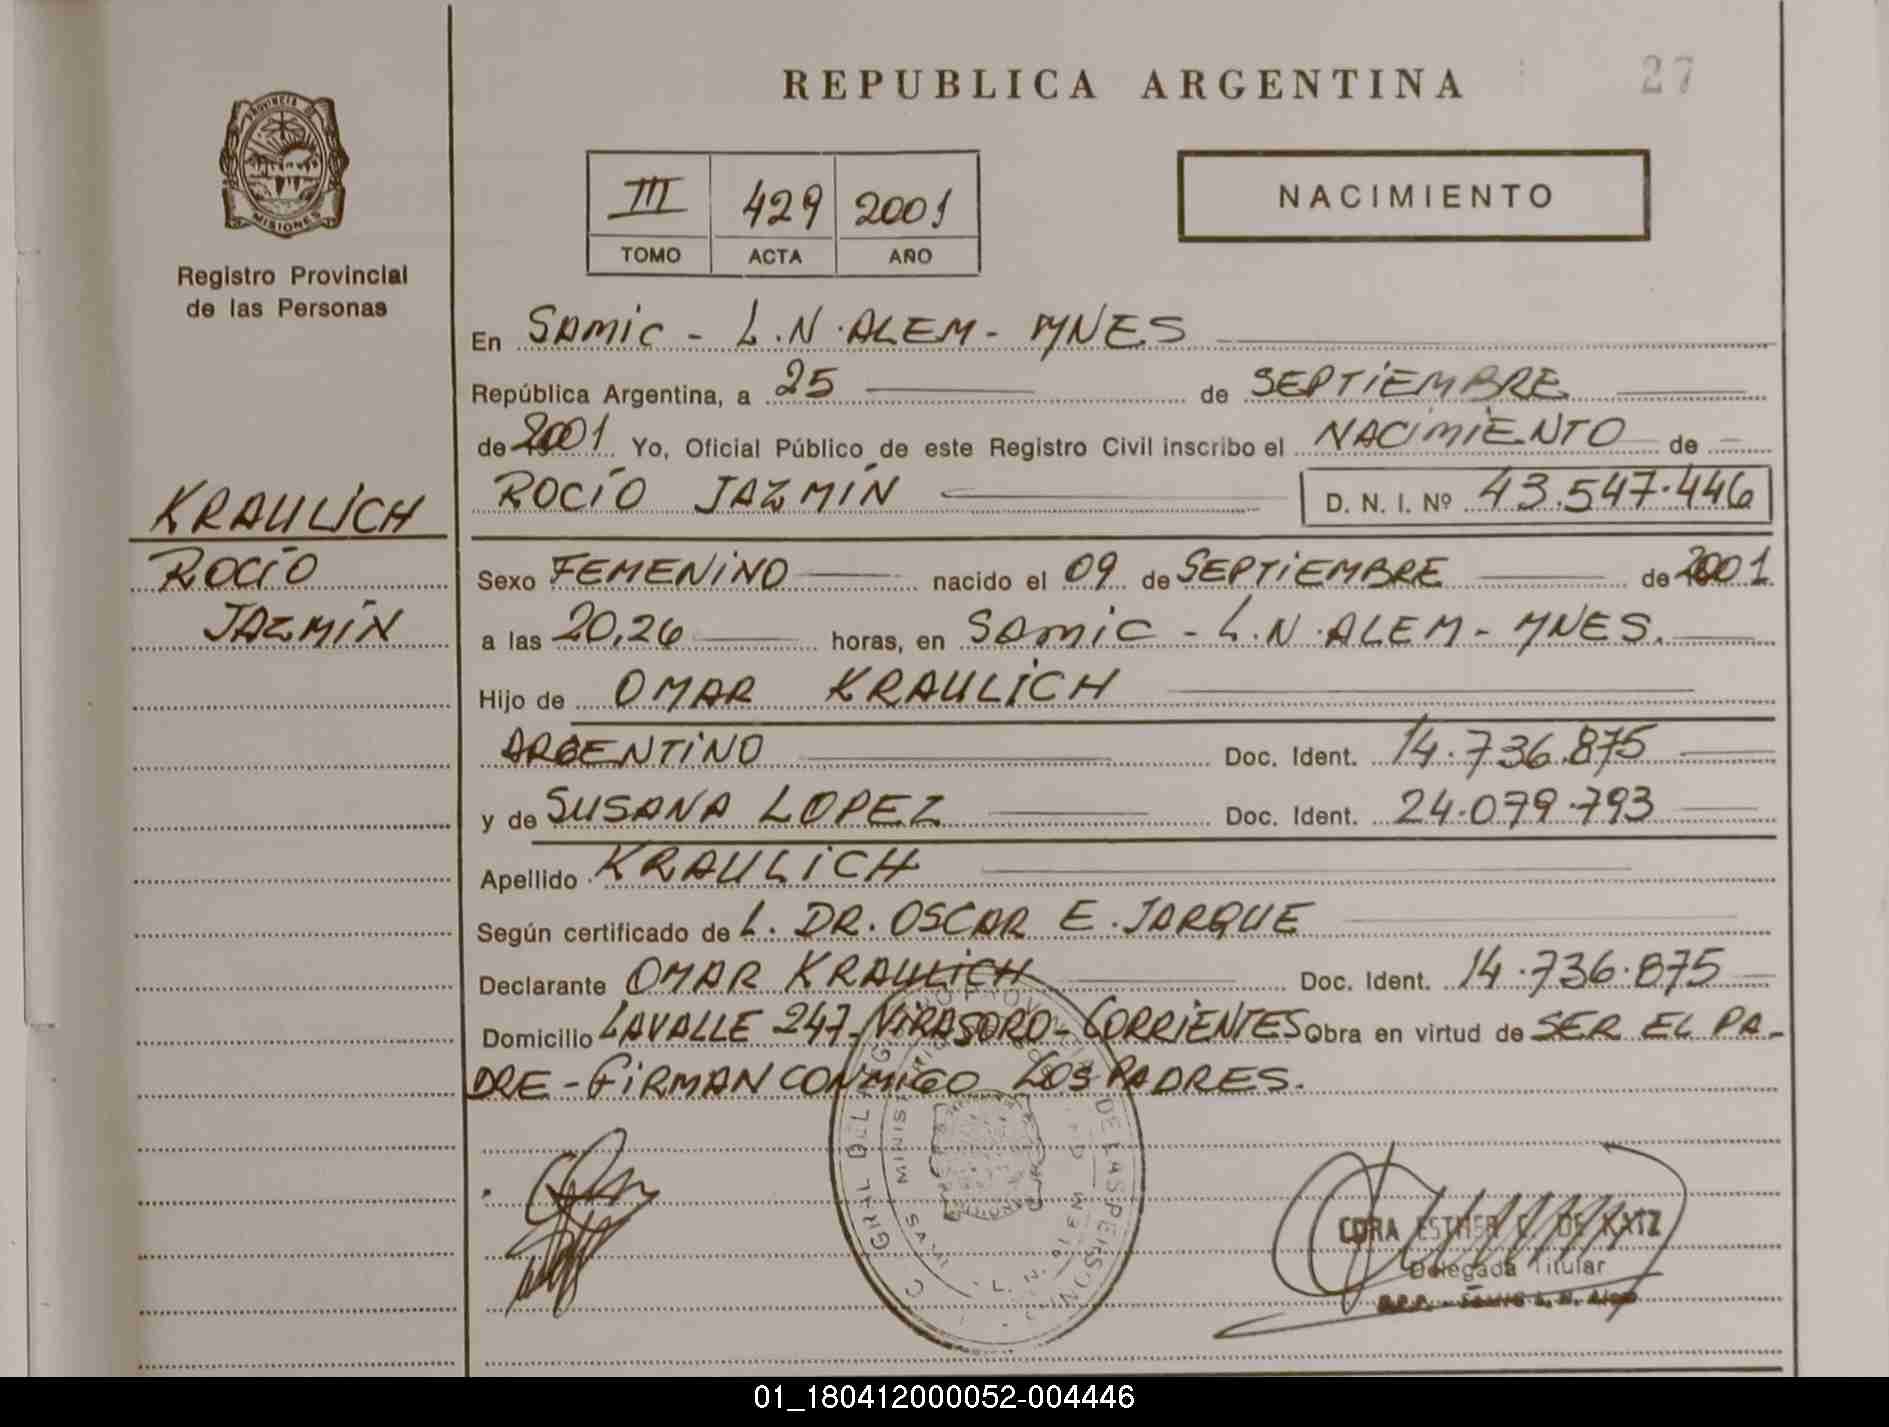 REPUBLICA ARGENTINA
27
PROVINCIA D
MISIONES
Registro Provincial
de las Personas
III 429 2001
TOMO ACTA AÑO
NACIMIENTO
En SAMIC - L.N. ALEM - MNES
República Argentina, a 25 de SEPTIEMBRE
de 2001 Yo, Oficial Público de este Registro Civil inscribo el NACIMIENTO de
ROCÍO JAZMÍN D. N. I. Nº 43.547.446
KRAULICH
ROCÍO
JAZMÍN
Sexo FEMENINO nacido el 09 de SEPTIEMBRE de 2001
a las 20,26 horas, en SAMIC - L.N. ALEM - MNES.
Hijo de OMAR KRAULICH
ARGENTINO Doc. Ident. 14.736.875
y de SUSANA LOPEZ Doc. Ident. 24.079.793
Apellido KRAULICH
Según certificado de L. DR. OSCAR E. JARQUE
Declarante OMAR KRAULICH Doc. Ident. 14.736.875
Domicilio LAVALLE 247 - VIRASORO - CORRIENTES Obra en virtud de SER EL PA-
DRE - FIRMAN CONMIGO LOS PADRES.
DE LAS PERSON
CORA ESTHER C. DE KATZ
Delegada Titular
01_180412000052-004446